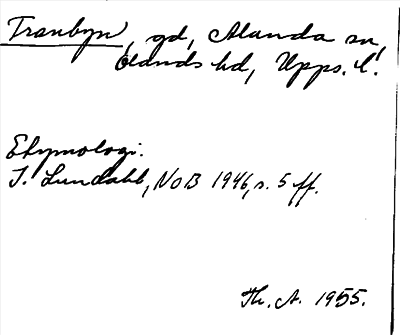 Tranbyn, gd, Alunda sn,
Olands hd, Upps. l.
Etymologi.
I. Lundahl, NoB 1946, s. 5 ff.
Th. A. 1955.